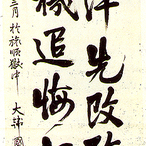 洋先改政
機追悔何
三月 於旅順獄中 大韓國